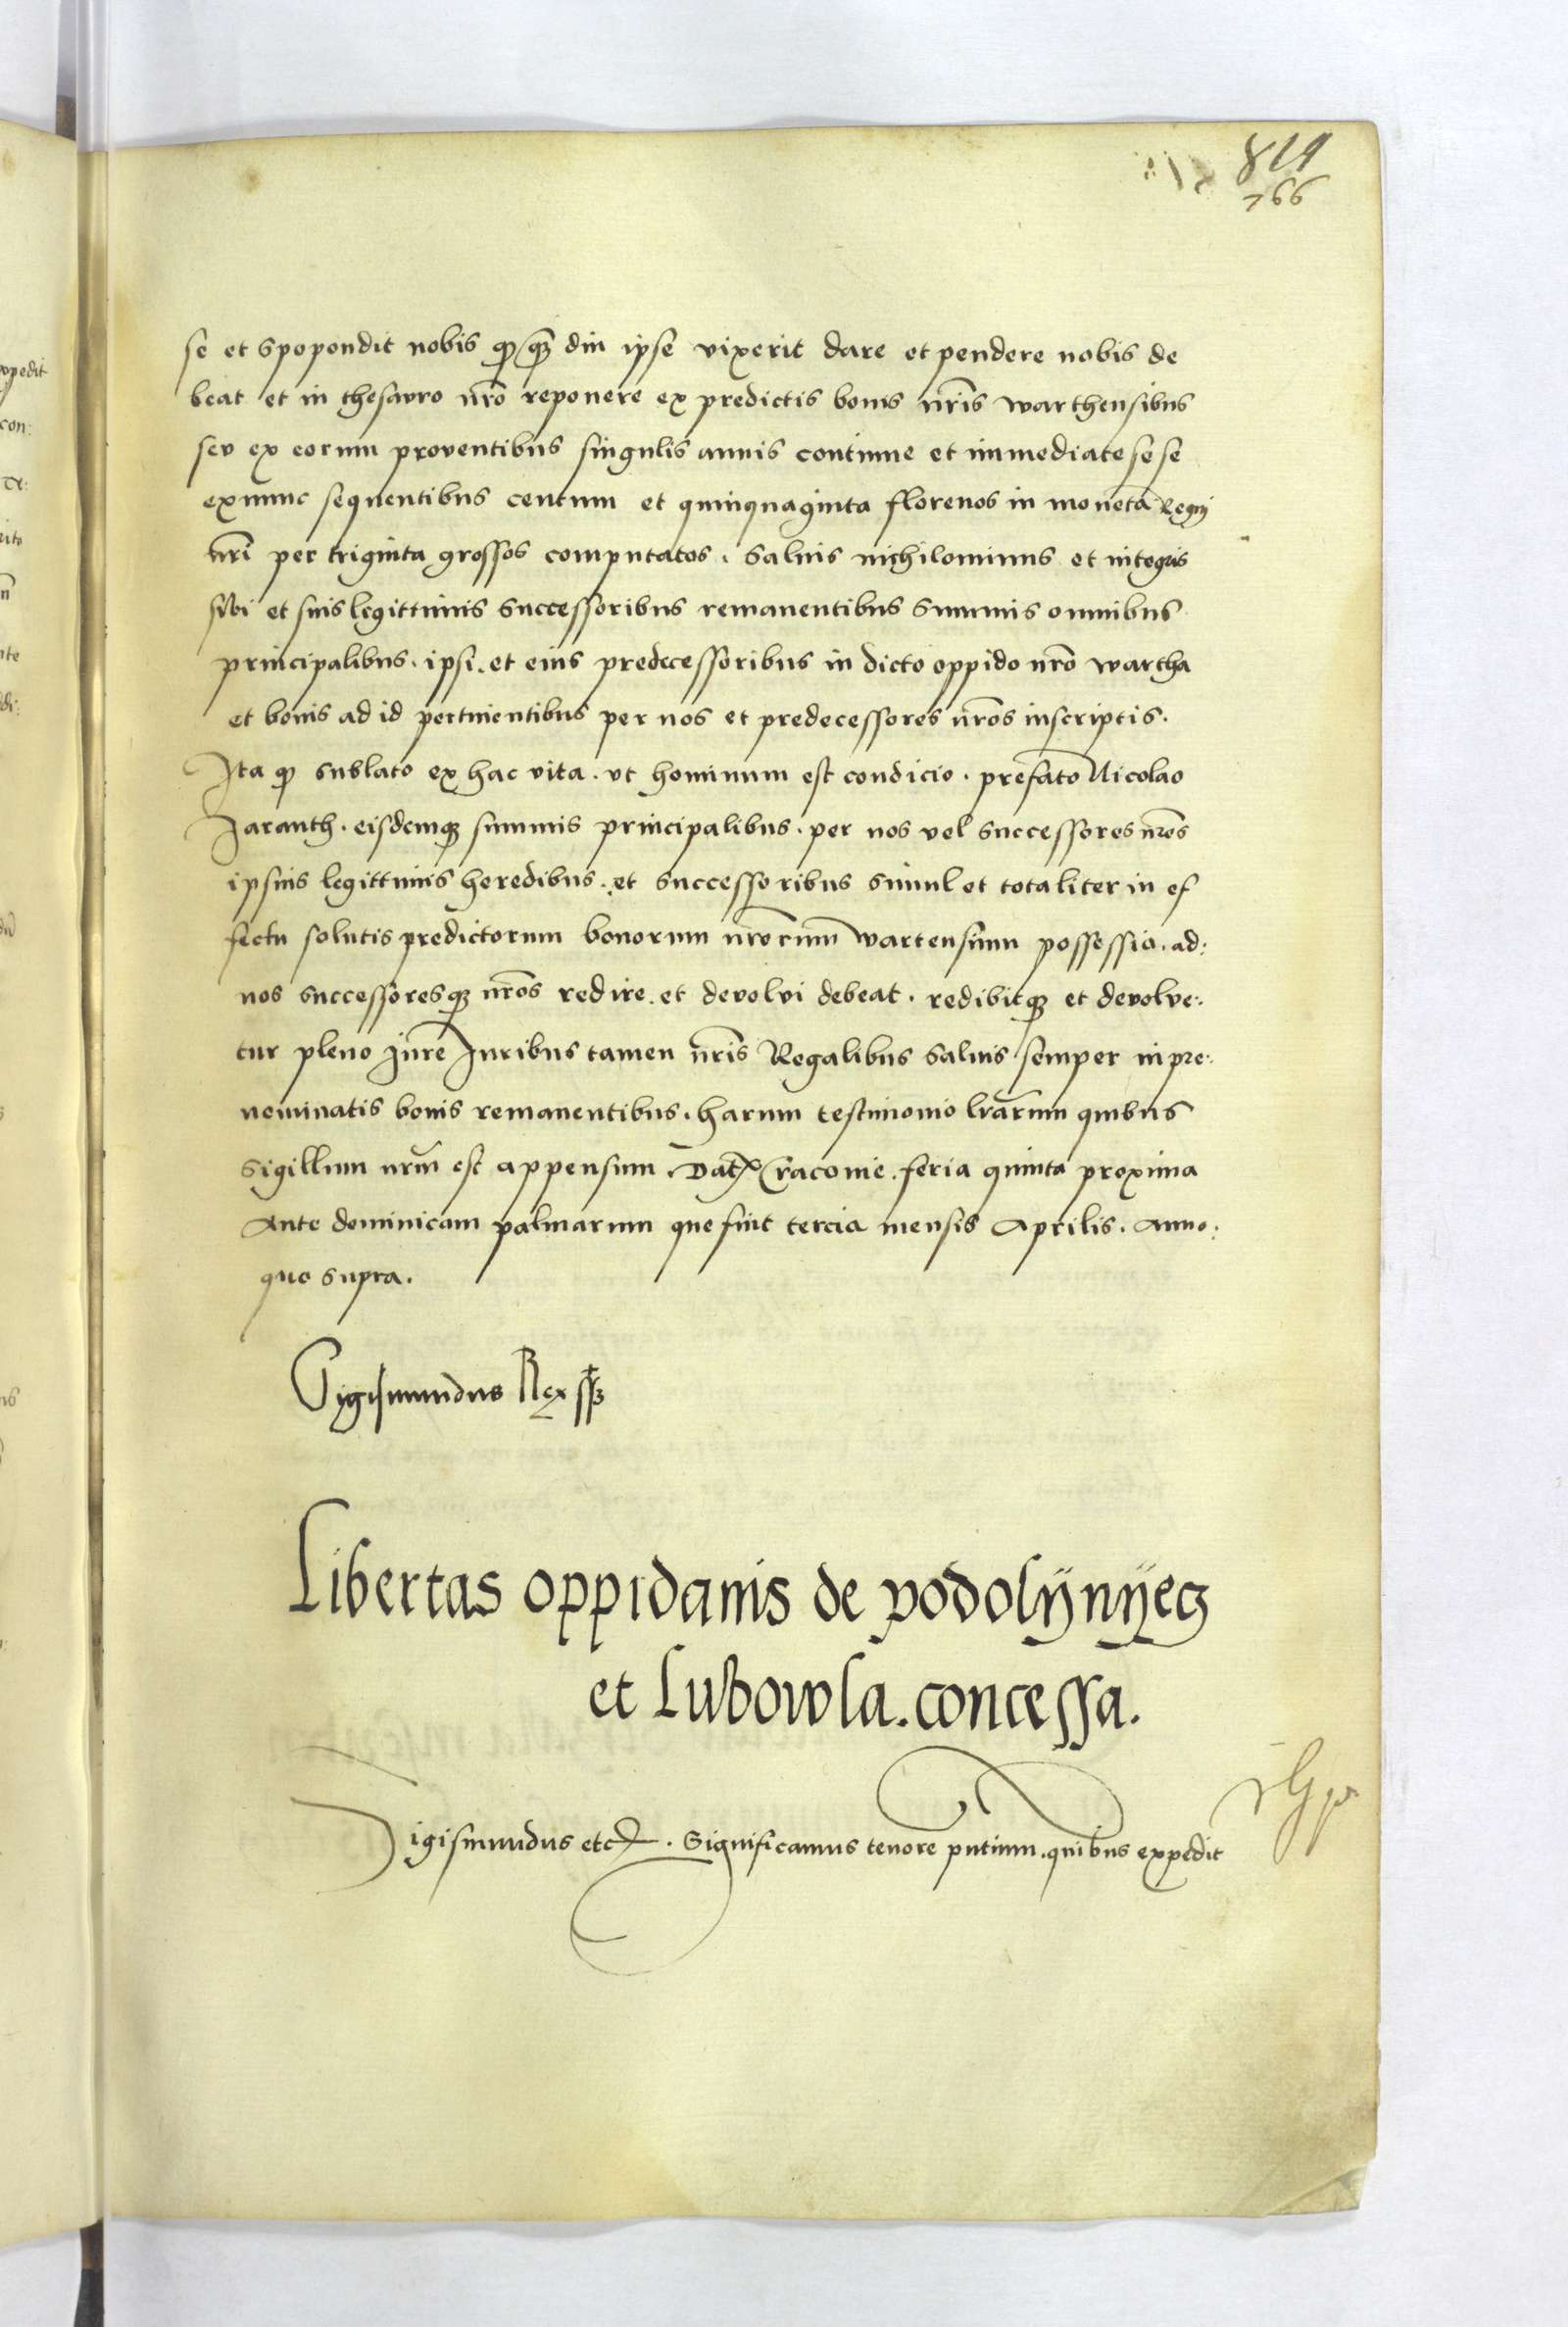 819
766
se et spopondit nobis qꝫ qꝫ diu ipse vixerit dare et pendere nobis de
beat et in thesauro nr̄o reponere ex predictis bonis nr̄is warthensibus
seu ex eorum proventibus singulis annis continue et immediate sese
exnunc sequentibus centum et quinquaginta florenos in moneta Regni
nr̄i per triginta grossos computatos. Salvis nichilominus et integris
sibi et suis legittimis successoribus remanentibus summis omnibus
principalibus. ipsi. et eius predecessoribus in dicto oppido nr̄o wartha
et bonis ad id pertinentibus per nos et predecessores nr̄os inscriptis.
Ita qꝫ sublato ex hac vita. ut hominum est condicio. prefato Nicolao
Jaranth. eisdemqꝫ summis principalibus. per nos vel successores nr̄os
ipsius legittimis heredibus. et successoribus simul et totaliter in ef
fectu solutis predictorum bonorum nr̄orum wartensium possessio. ad:
nos successoresqꝫ nr̄os redire. et devolvi debeat. redibitqꝫ et devolve:
tur pleno jure Juribus tamen nr̄is Regalibus salvis semper in pre:
nominatis bonis remanentibus. harum testimonio lr̄arum quibus
Sigillum nr̄m est appensum. Dat̄ Cracovie. feria quinta proxima
Ante dominicam palmarum que fuit tercia mensis Aprilis. Anno:
quo supra.
Sigismundus Rex sst
Libertas oppidanis de podolÿnÿecz
et Lubowla. concessa.
Sigismundus etc. Significamus tenore pn̄tium. quibus expedit